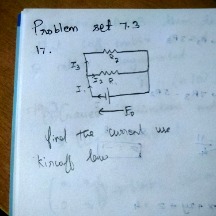 Problem set 7.3
17.
R₂
I₃
I₂ R₁
I₁
E₀
find the current use
kircoff law